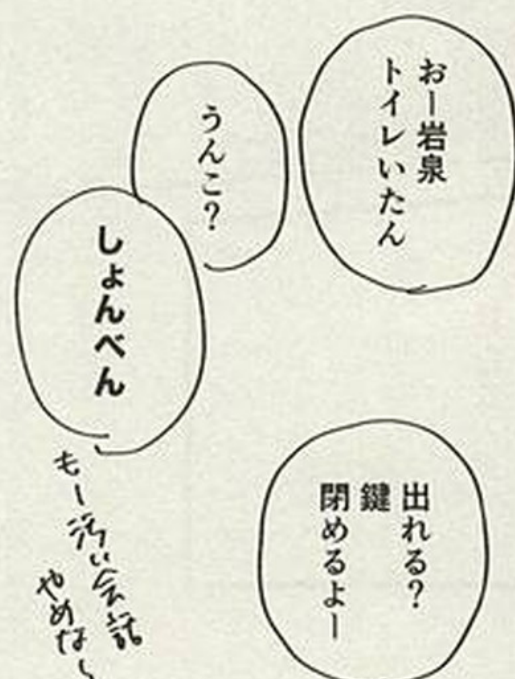 おー岩泉
トイレいたん
うんこ?
しょんべん
もー汚い会話
やめな〜
出れる?
鍵
閉めるよー